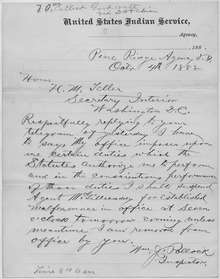 United States Indian Service,
Agency,
188
Pine Ridge Agency, D.T.
Octr 4th 1882
Hon.
H. M. Teller
Secretary Interior
Washington D.C.
Respectfully replying to your
telegram of yesterday I have
to say: My office imposes upon
me certain duties which the
Statutes Authorize me to perform
and in the conscientious performance
of those duties I shall suspend
Agent McGillycuddy for established
malfeasance in office at seven
o'clock tomorrow evening unless
meantime I am removed from
office by you.
Wm. J. Pollock
Inspector